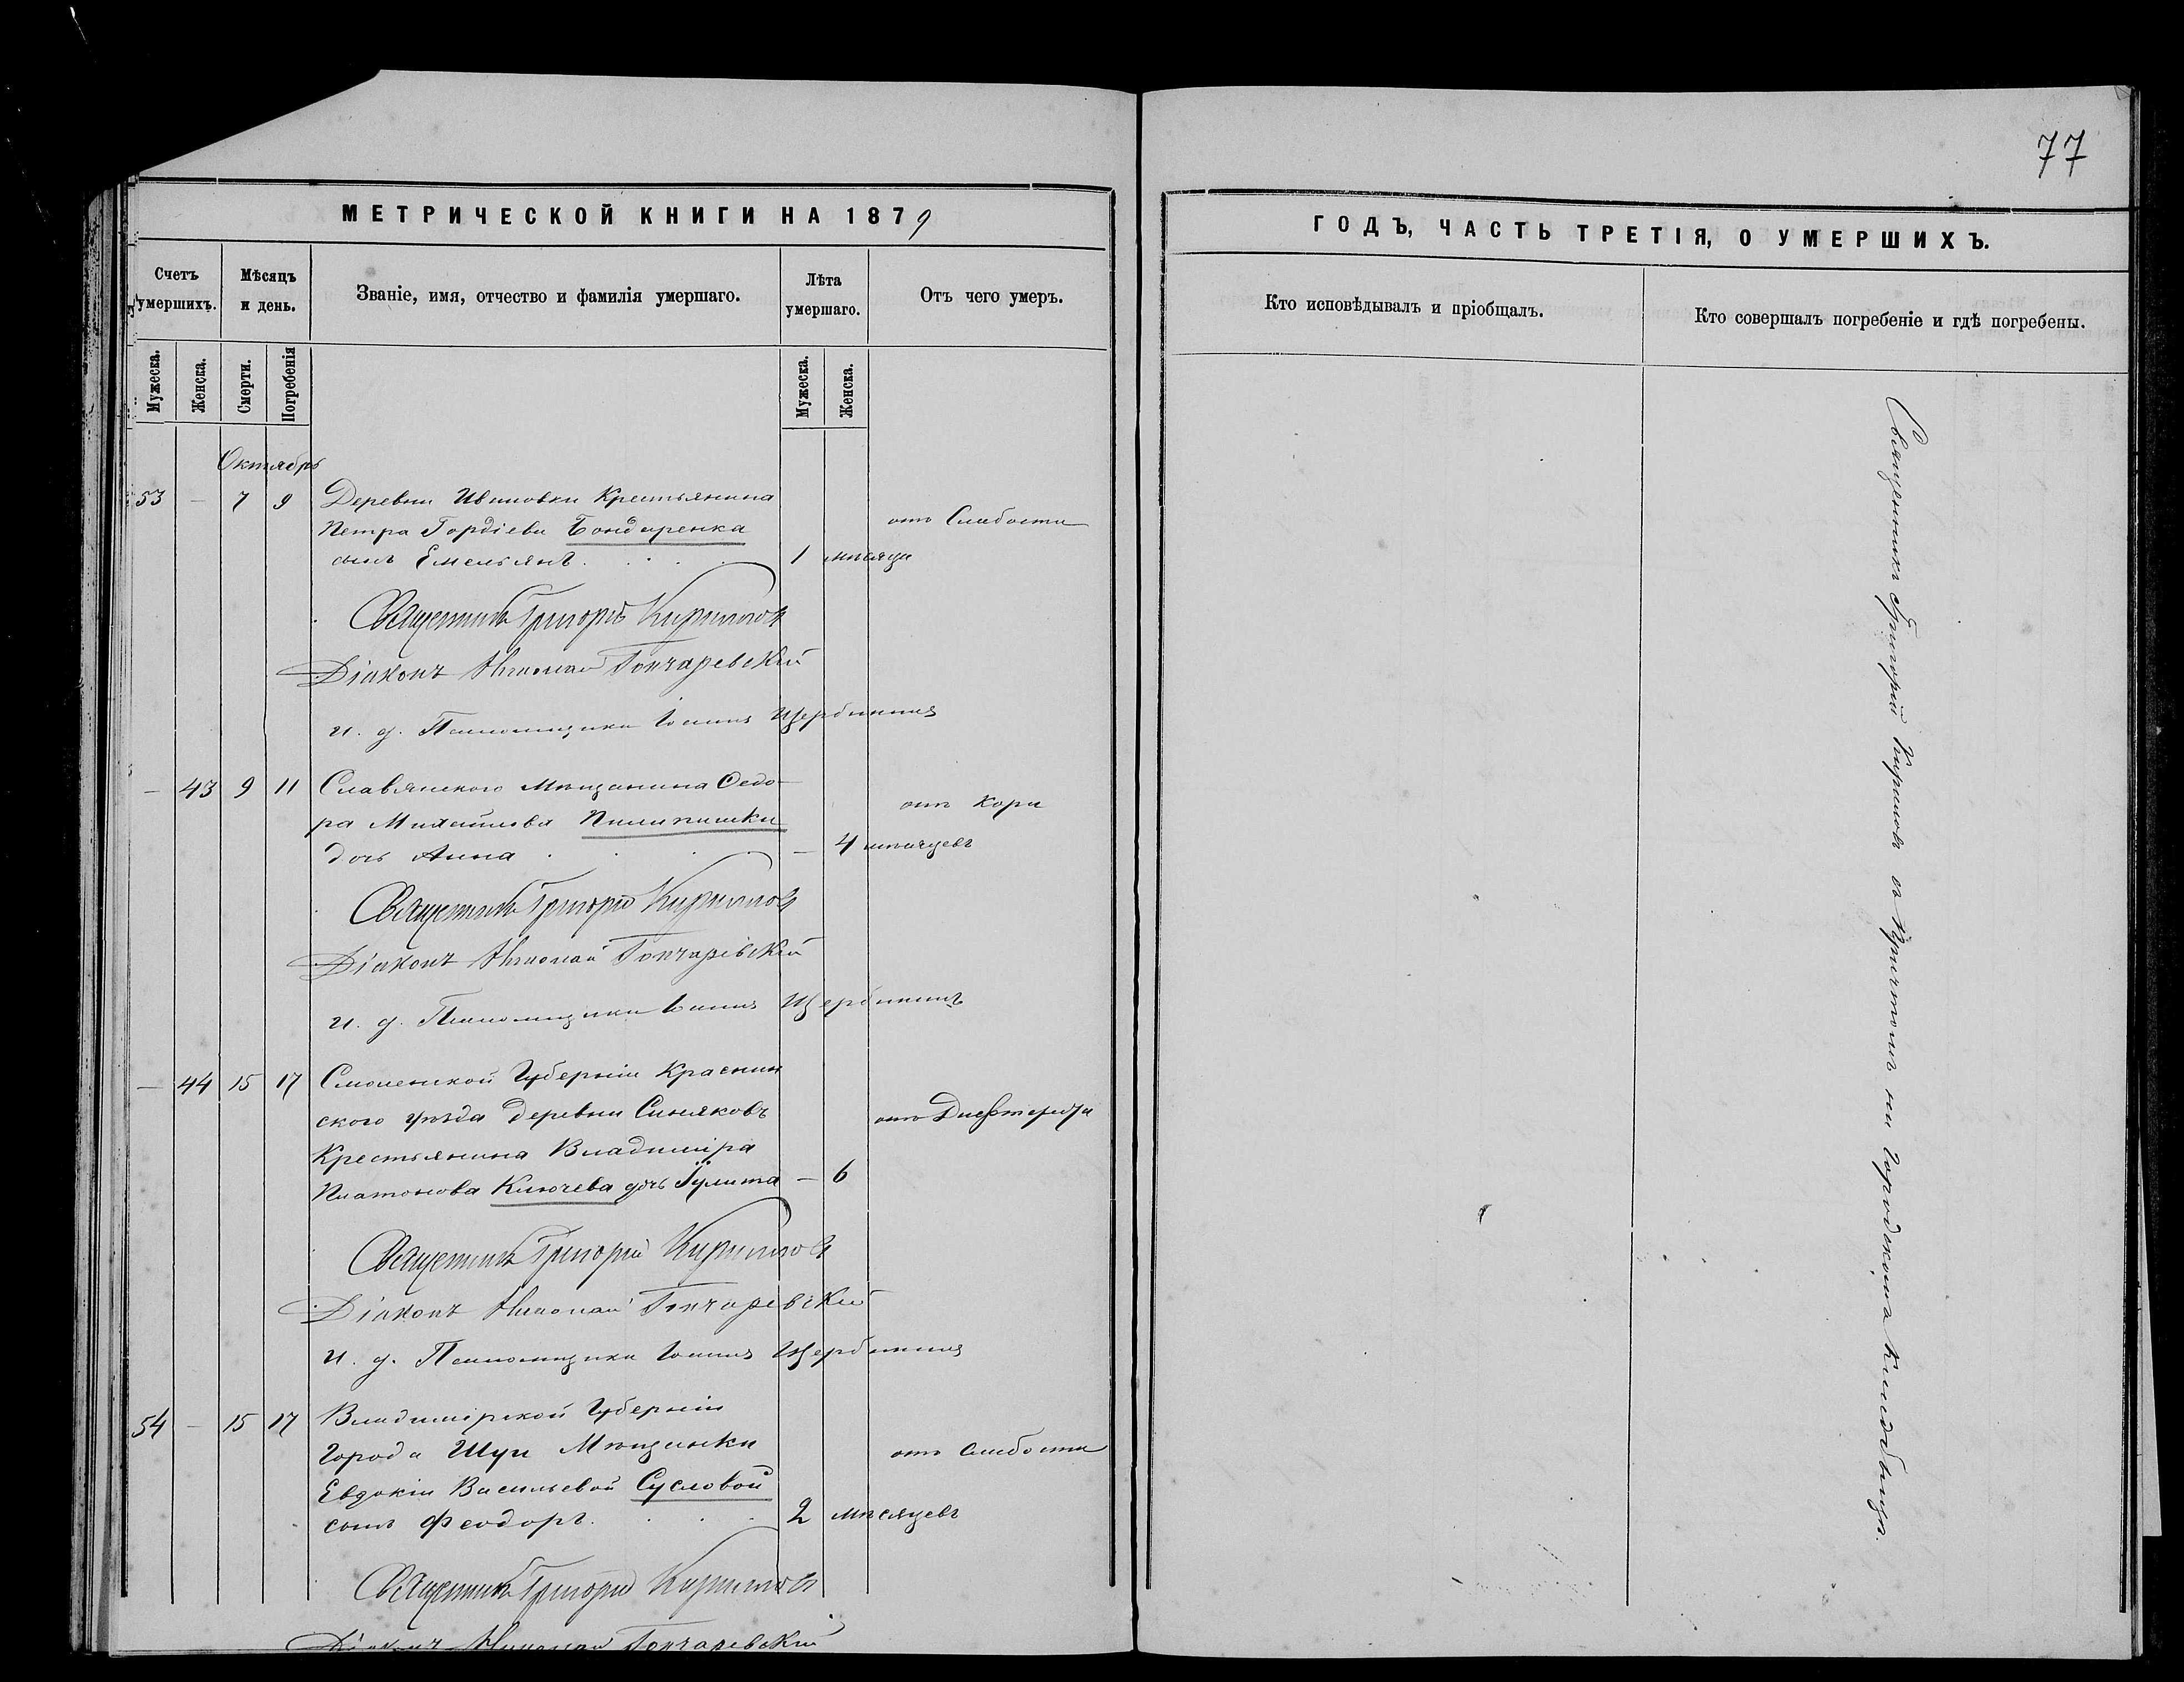 77
МЕТРИЧЕСКОЙ КНИГИ НА 1879
ГОДЪ, ЧАСТЬ ТРЕТІЯ, О УМЕРШИХЪ.
Счетъ умершихъ.
Мѣсяцъ и день.
Званіе, имя, отчество и фамилія умершаго.
Лѣта умершаго.
Отъ чего умеръ.
Кто исповѣдывалъ и пріобщалъ.
Кто совершалъ погребеніе и гдѣ погребены.
Мужеска. Женска. Смерти. Погребенія Мужеска. Женска.
Октябрь
53 — 7 9 Деревни Ивановки Крестьянина
Петра Гордіева Бондаренка
отъ Слабости
сынъ Емельянъ . . . . 1 мѣсяца
Священникъ Григорій Кириллов
Діаконъ Николай Гончаревскій
И. д. Псаломщика Іоаннъ Щербининъ
— 43 9 11 Славянского Мѣщанина Ѳедо-
ра Михайлова
отъ Кори
дочь Анна . . . . — 4 мѣсяцевъ
Священникъ Григорій Кириллов
Діаконъ Николай Гончаревскій
И. д. Псаломщика Іоаннъ Щербининъ
— 44 15 17 Смоленской Губерніи Краснин
ского уѣзда деревни Синяковъ
отъ
Крестьянина Владиміра
Платонова Ключева дочь Іулита — 6
Священникъ Григорій Кириллов
Діаконъ Николай Гончаревскій
И. д. Псаломщика Іоаннъ Щербининъ
54 — 15 17 Владимірской Губерніи
Города Шуи Мѣщанки
отъ Слабости
Евдокіи Васильевой Сусловой
сынъ Феодоръ . . . 2 мѣсяцевъ
Священникъ Григорій Кириллов
Діаконъ Николай Гончаревскій
Священникъ Григорій Кириллов съ Причтомъ на Городскомъ Кладбищѣ.